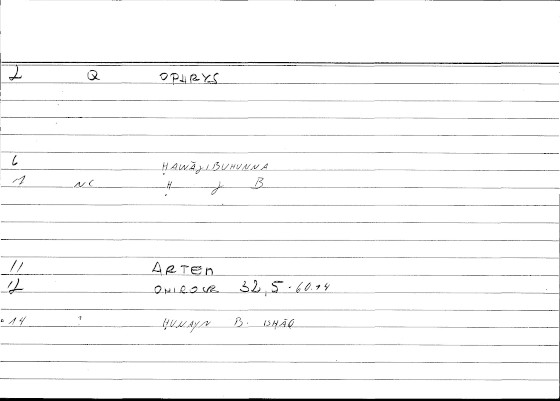 2 Q OPHRYS
6 ḤAWĀǧIBUHUNNA
1 NC Ḥ ǧ B
11 ARTEM
12 ONIROCR 32,5-60.14
14 " ḤUNAYN B. ISHĀQ